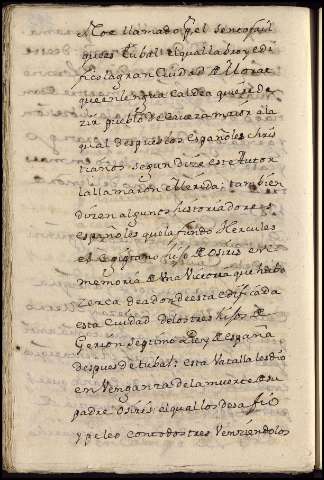 Noe llamado
queës Tubal; el qual labro y edi
fico la gran Ciudad de Morat
que en lengua Caldea quiere de
zir pueblo de caveza maior á la
qual despues los Españoles chris
tianos segun dize este Autor
la llamaron Merida; tambien
dizen algunos historiadores
españoles que la fundo Hercules
el egigtano hijo de Osiris en
memoria de Vna Victoria que hubo
zerca de adonde esta edificada
esta Ciudad de los tres hijos de
Gerion septimo Rey de España
despues de tubal: esta Vatalla les dio
en Venganza de la muerte de su
padre Osiris; el qual los desafió
y peleo con todos tres Venziendolos